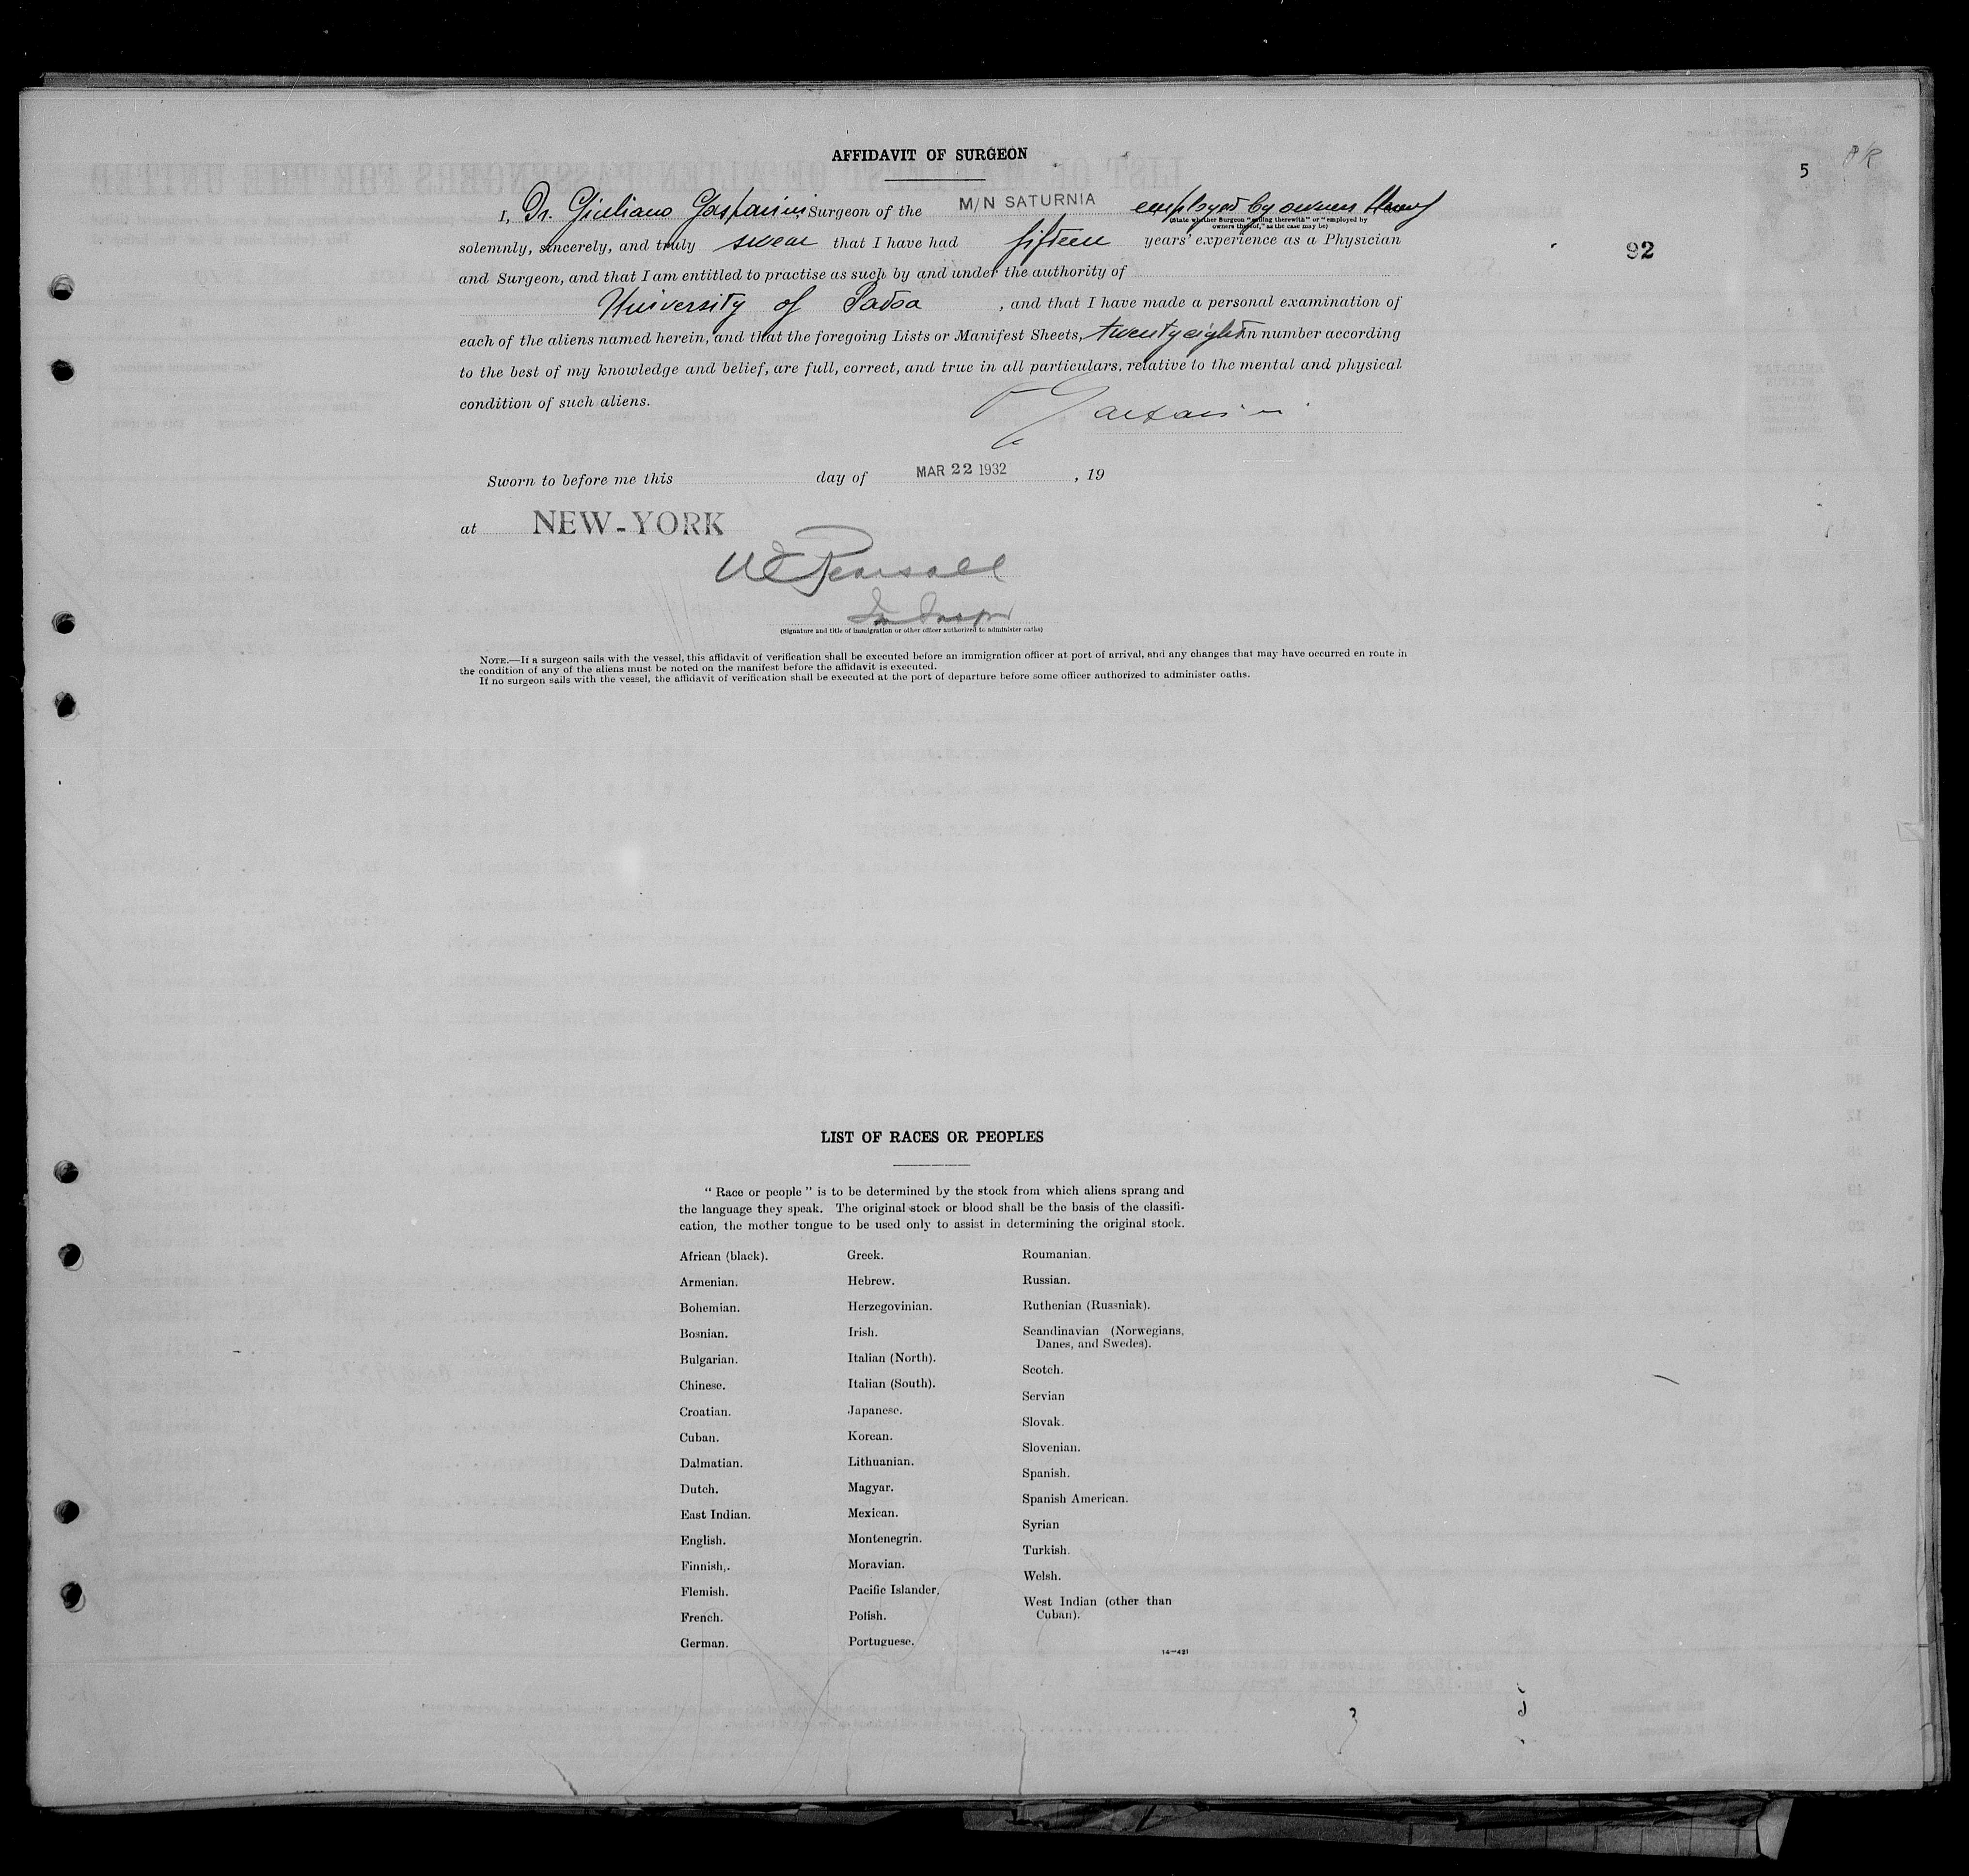 AFFIDAVIT OF SURGEON
5
I, Dr. Giuliano Gasparini Surgeon of the M/N SATURNIA employed by owners thereof
(State whether Surgeon "sailing therewith" or "employed by
owners thereof," as the case may be)
solemnly, sincerely, and truly swear that I have had fifteen years' experience as a Physician
92
and Surgeon, and that I am entitled to practise as such by and under the authority of
University of Padoa, and that I have made a personal examination of
each of the aliens named herein, and that the foregoing Lists or Manifest Sheets, twenty eight in number according
to the best of my knowledge and belief, are full, correct, and true in all particulars, relative to the mental and physical
condition of such aliens.
Gasparini
Sworn to before me this day of MAR 22 1932, 19
at NEW-YORK
Pearsall
(Signature and title of immigration or other officer authorized to administer oaths)
NOTE.—If a surgeon sails with the vessel, this affidavit of verification shall be executed before an immigration officer at port of arrival, and any changes that may have occurred en route in
the condition of any of the aliens must be noted on the manifest before the affidavit is executed.
If no surgeon sails with the vessel, the affidavit of verification shall be executed at the port of departure before some officer authorized to administer oaths.
LIST OF RACES OR PEOPLES
" Race or people " is to be determined by the stock from which aliens sprang and
the language they speak. The original stock or blood shall be the basis of the classifi-
cation, the mother tongue to be used only to assist in determining the original stock.
African (black).
Armenian.
Bohemian.
Bosnian.
Bulgarian.
Chinese.
Croatian.
Cuban.
Dalmatian.
Dutch.
East Indian.
English.
Finnish,.
Flemish.
French.
German.
Greek.
Hebrew.
Herzegovinian.
Irish.
Italian (North).
Italian (South).
Japanese.
Korean.
Lithuanian.
Magyar.
Mexican.
Montenegrin.
Moravian.
Pacific Islander.
Polish.
Portuguese.
Roumanian.
Russian.
Ruthenian (Russniak).
Scandinavian (Norwegians,
Danes, and Swedes).
Scotch.
Servian
Slovak.
Slovenian.
Spanish.
Spanish American.
Syrian
Turkish.
Welsh.
West Indian (other than
Cuban).
14—421